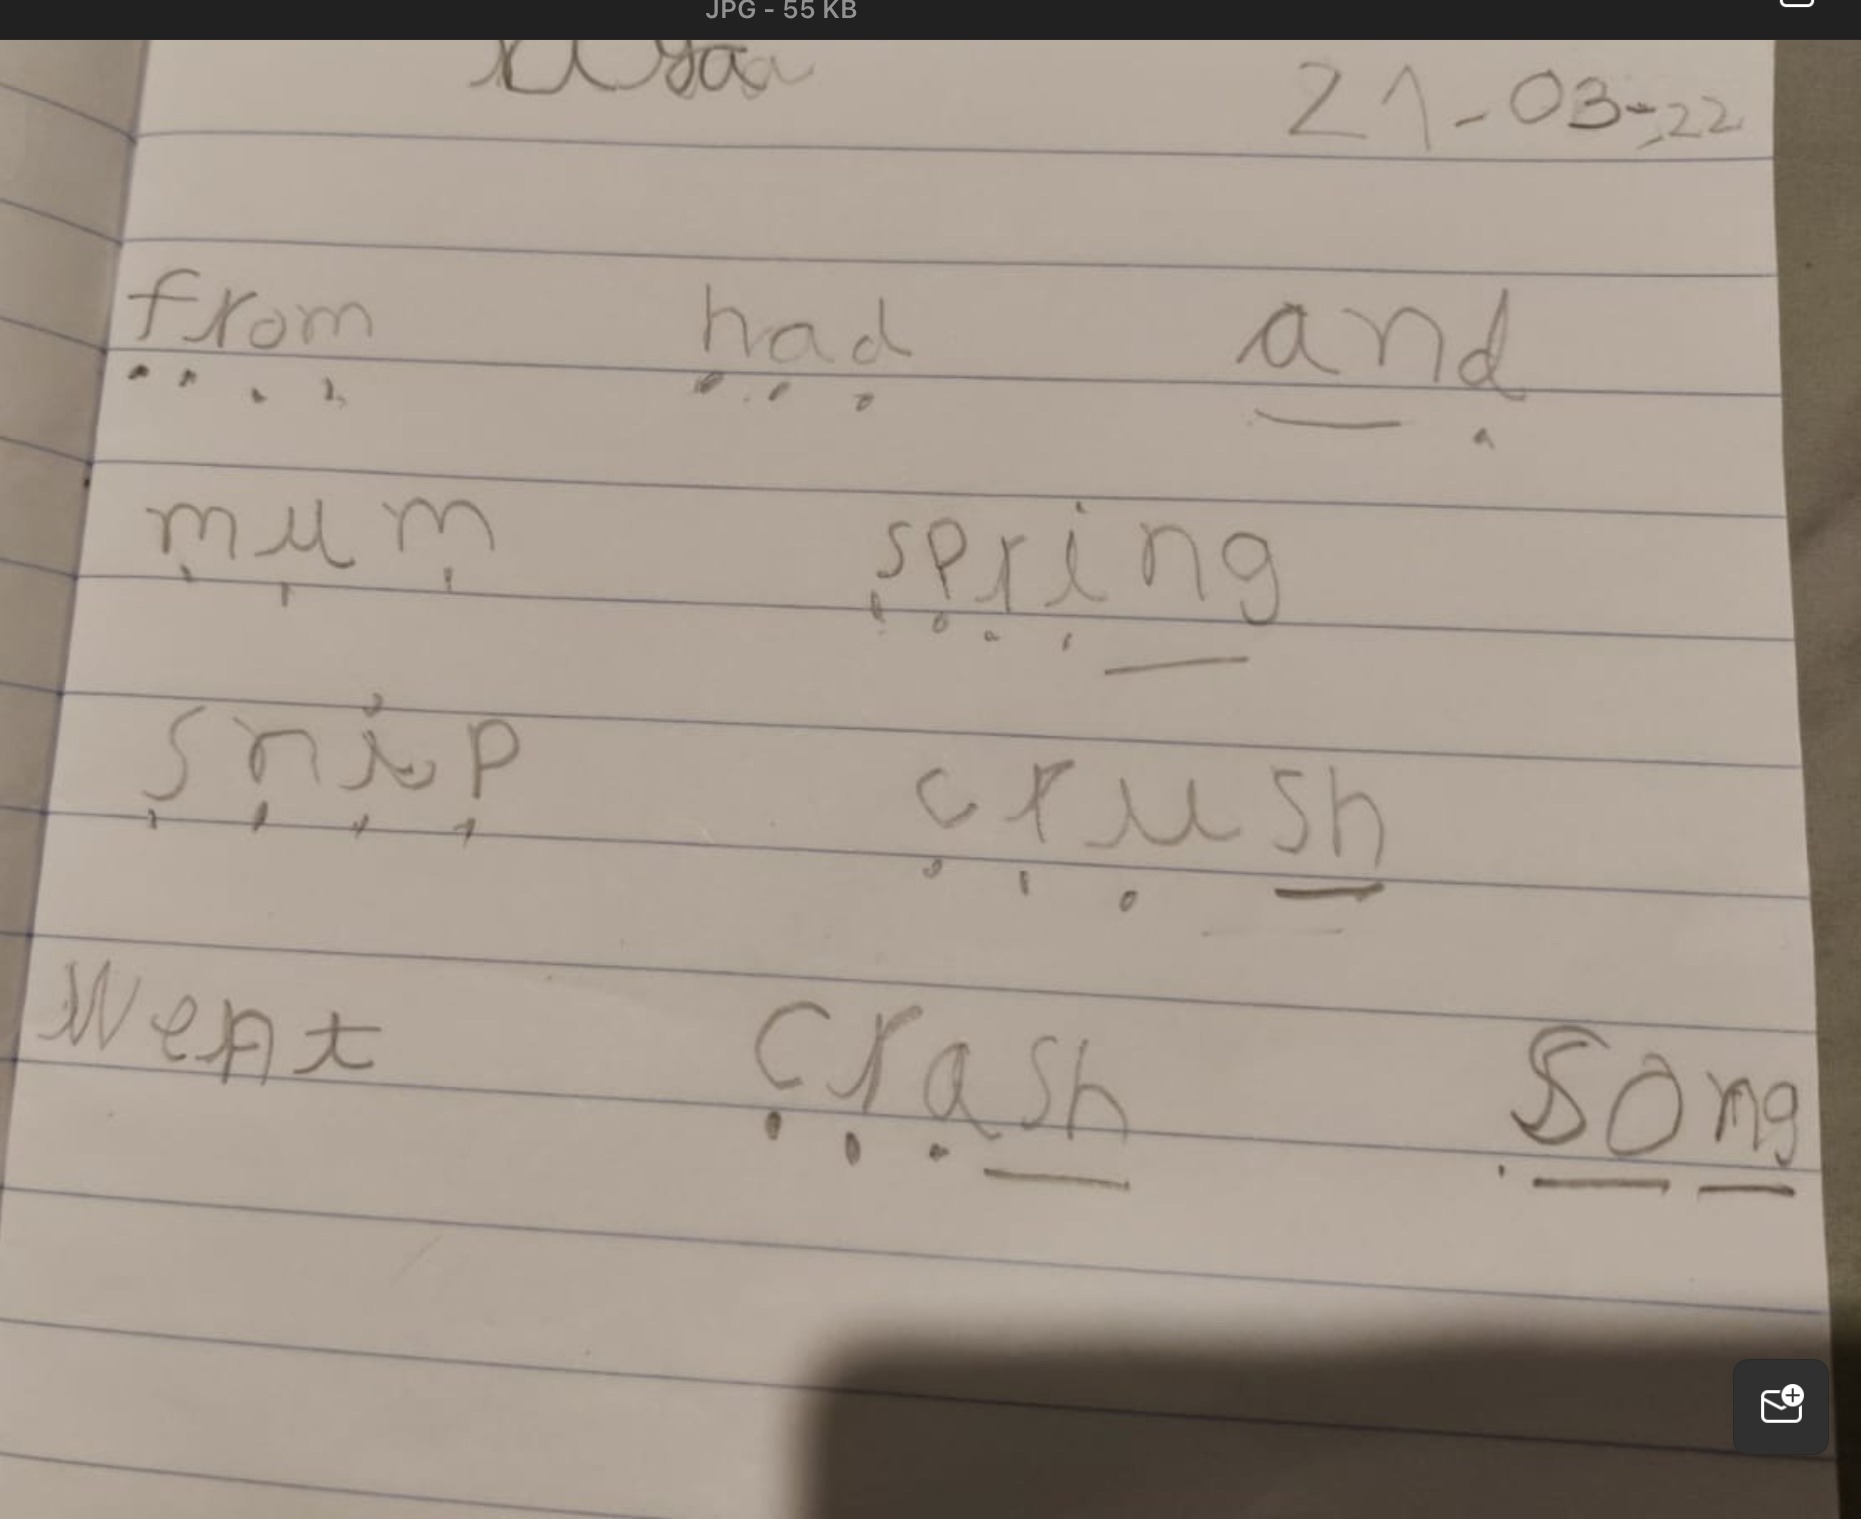 JPG - 55 KB
21-03-22
from had and
mum spring
snip crush
Went crash song